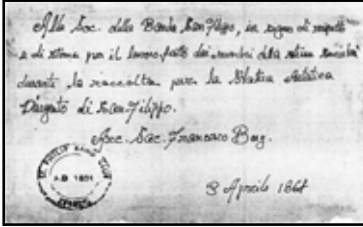 Alla Soc. della Banda San Filippo, in segno di rispetto
e di stima per il lavoro fatto dai membri della stessa
durante la raccolta per la Statua Artistica
D'argento di San Filippo.
Avv. Sac. Francesco Borg.
ST. PHILIP BAND CLUB
A.D 1851
ZEBBUG
3 Aprile 1864